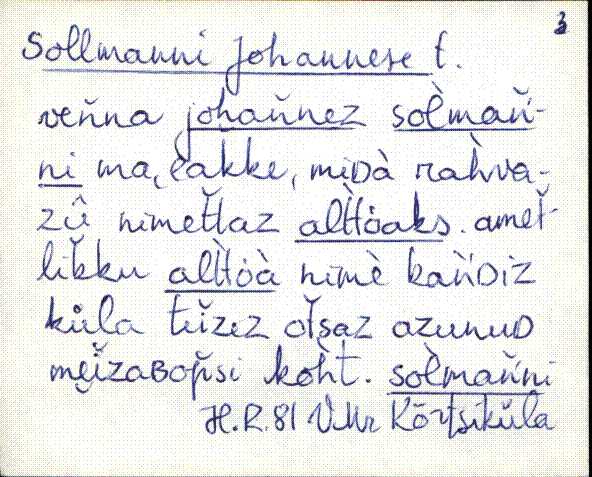 3
Sollmanni Johannese t.
veňna johaňnez soĺmaň-
ni ma, lakke, midà rahva-
zû nimet̆taz alt̆t̀óaks. amet̆-
lik̆ku alt̆t̀óà nimè kaňdiz
küla teĭzez ot̆saz azunuD
męĭzaʙop̆si koh̀t. soĺmaňni
H.R. 81 VMr Kõrtsiküla